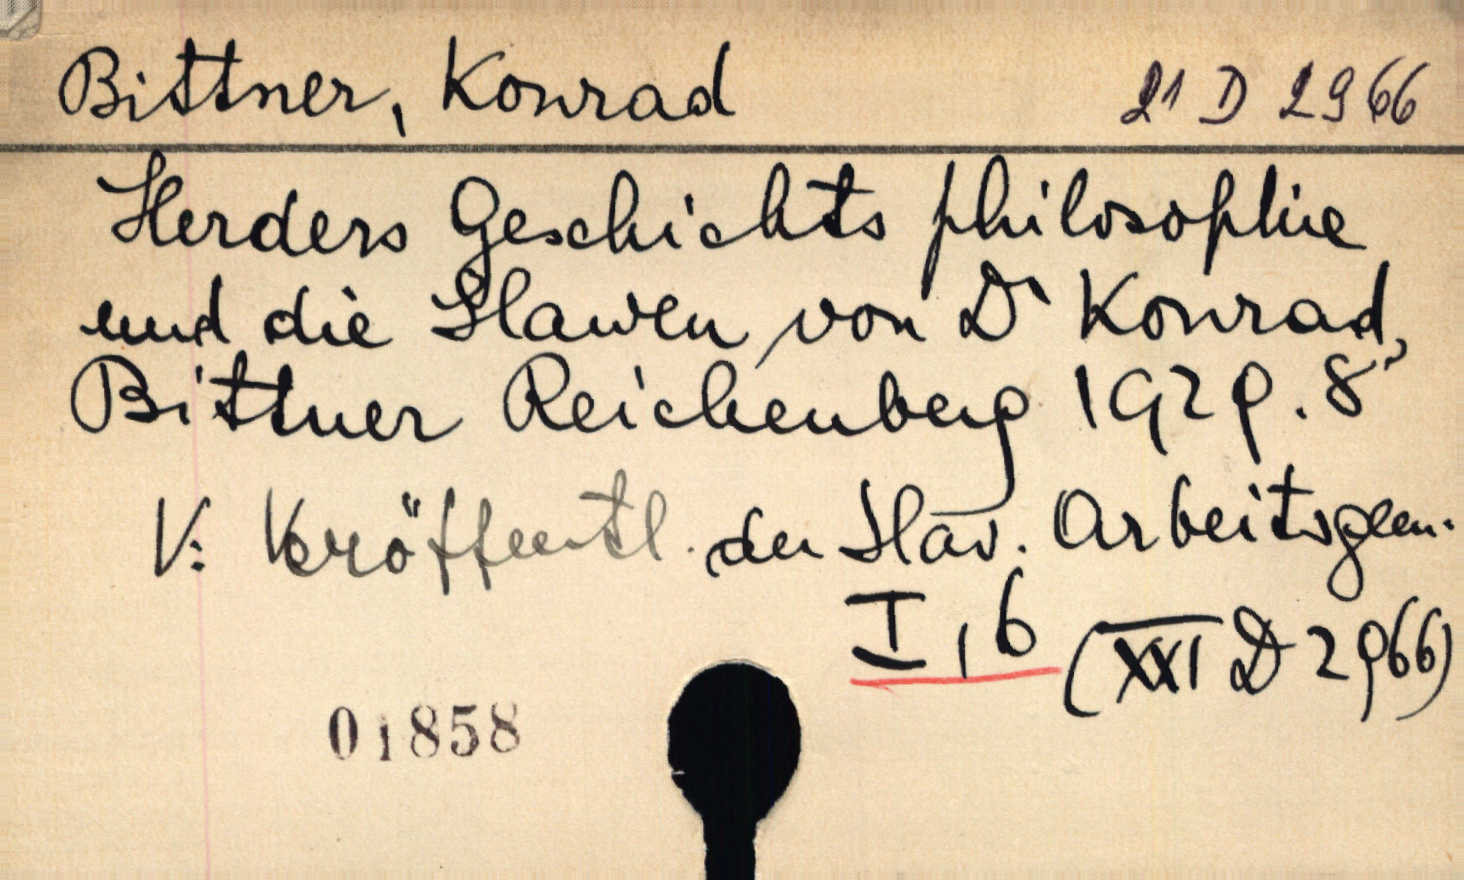 Bittner, Konrad 21 D 2966
Herders Geschichtsphilosophie
und die Slawen von Dr Konrad
Bittner Reichenberg 1929. 8°
V: Veröffentl. der Slav. Arbeitsgem.
I, 6 (XXI D 2966)
01858